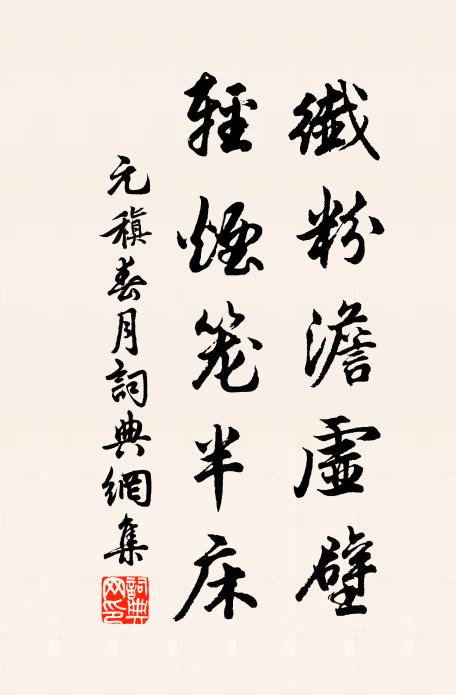 纖粉澹虛壁
輕煙笼半床
元稹春月詞典網集
詞典網印